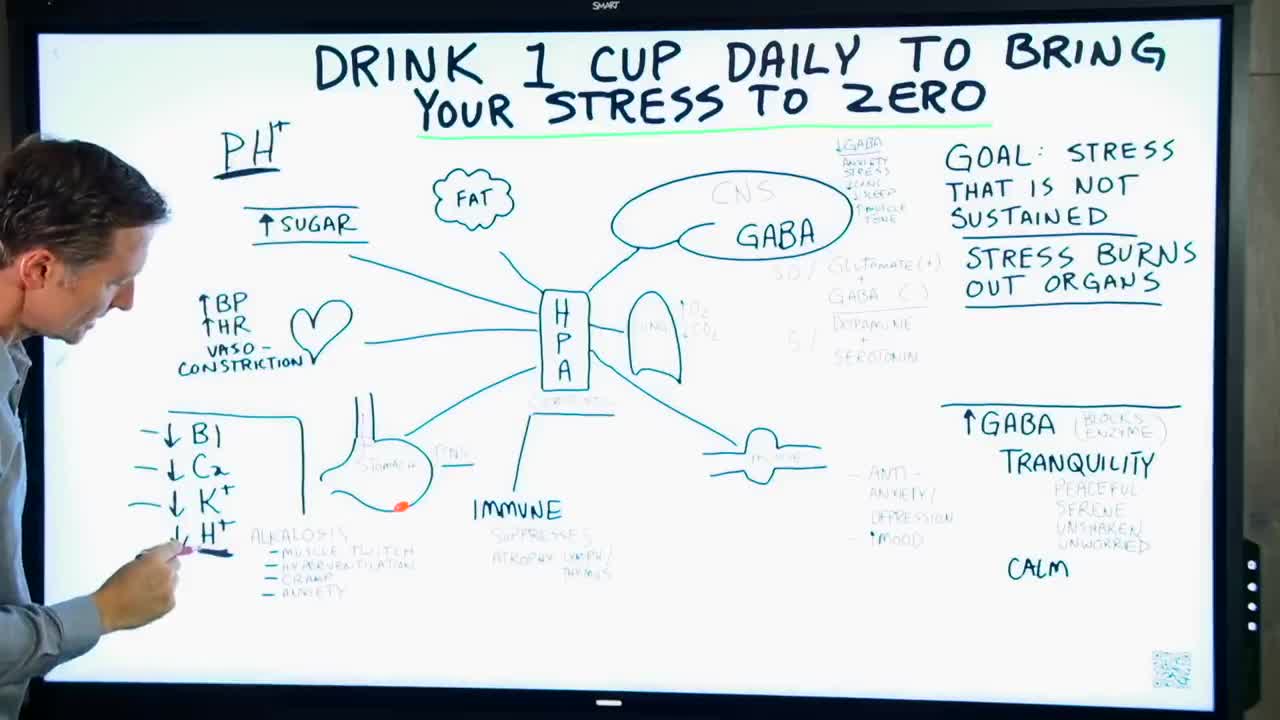 SMART
DRINK 1 CUP DAILY TO BRING
YOUR STRESS TO ZERO
PH+
↑ SUGAR
FAT
CNS
GABA
↓GABA
ANXIETY
STRESS
↓SLEEP
↑MUSCLE
TONE
GOAL: STRESS
THAT IS NOT
SUSTAINED
STRESS BURNS
OUT ORGANS
↑BP
↑HR
VASO-
CONSTRICTION
H
P
A
LUNG
↑O2
↓CO2
GLUTAMATE (+)
+
GABA (-)
DOPAMINE
+
SEROTONIN
- ↓ B1
- ↓ Ca
- ↓ K+
↓ H+
STOMACH
IMMUNE
SUPPRESSES
ATROPHY LYMPH/
THYMUS
ALKALOSIS
- MUSCLE TWITCH
- HYPERVENTILATION
- CRAMP
- ANXIETY
- ANTI-
ANXIETY/
DEPRESSION
- ↑MOOD
↑GABA (BLOCKS
ENZYME)
TRANQUILITY
PEACEFUL
SERENE
UNSHAKEN
UNWORRIED
CALM